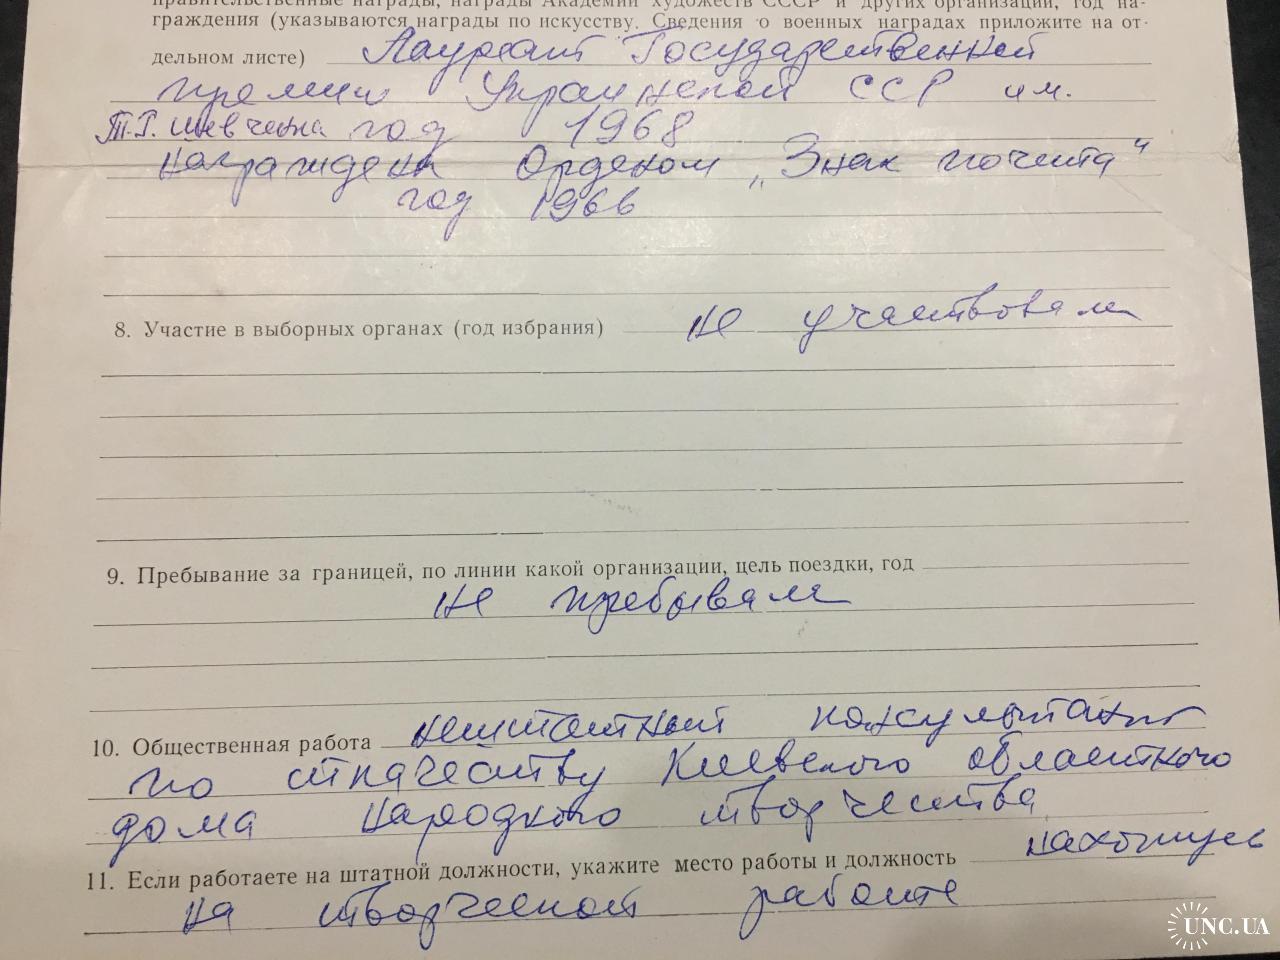 правительственные награды, награды Академии художеств СССР и других организаций, год на-
граждения (указываются награды по искусству. Сведения о военных наградах приложите на от-
дельном листе) Лауреат Государственной
премии Украинской ССР им.
Т.Г. Шевченка год 1968
Награжден Орденом „Знак почета"
год 1966
8. Участие в выборных органах (год избрания) не участвовал
9. Пребывание за границей, по линии какой организации, цель поездки, год
не пребывал
10. Общественная работа нештатный консультант
по ткачеству Киевского областного
дома народного творчества
11. Если работаете на штатной должности, укажите место работы и должность нахожусь
на творческой работе
UNC.UA